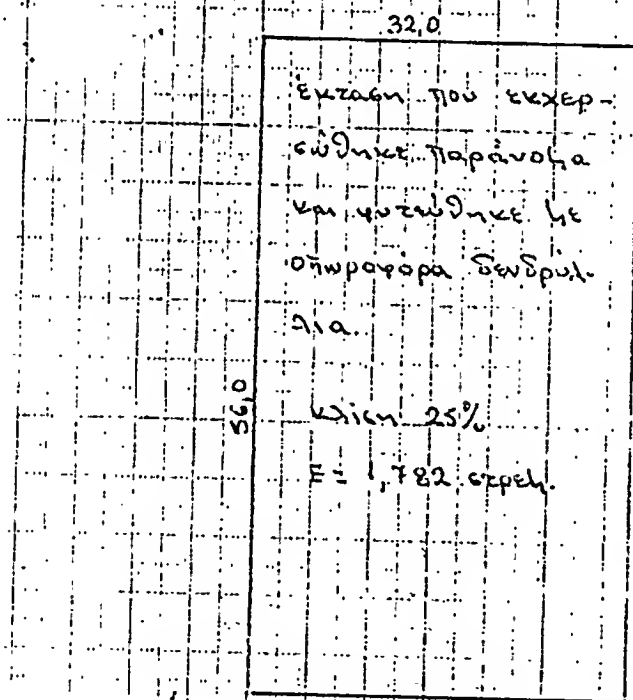 32,0
έκταση που εκχερ-
σώθηκε παράνομα
και φυτεύθηκε με
οπωροφόρα δενδρύλ-
λια.
56,0
κλίση 25%
Ε= 1,782 στρεμ.